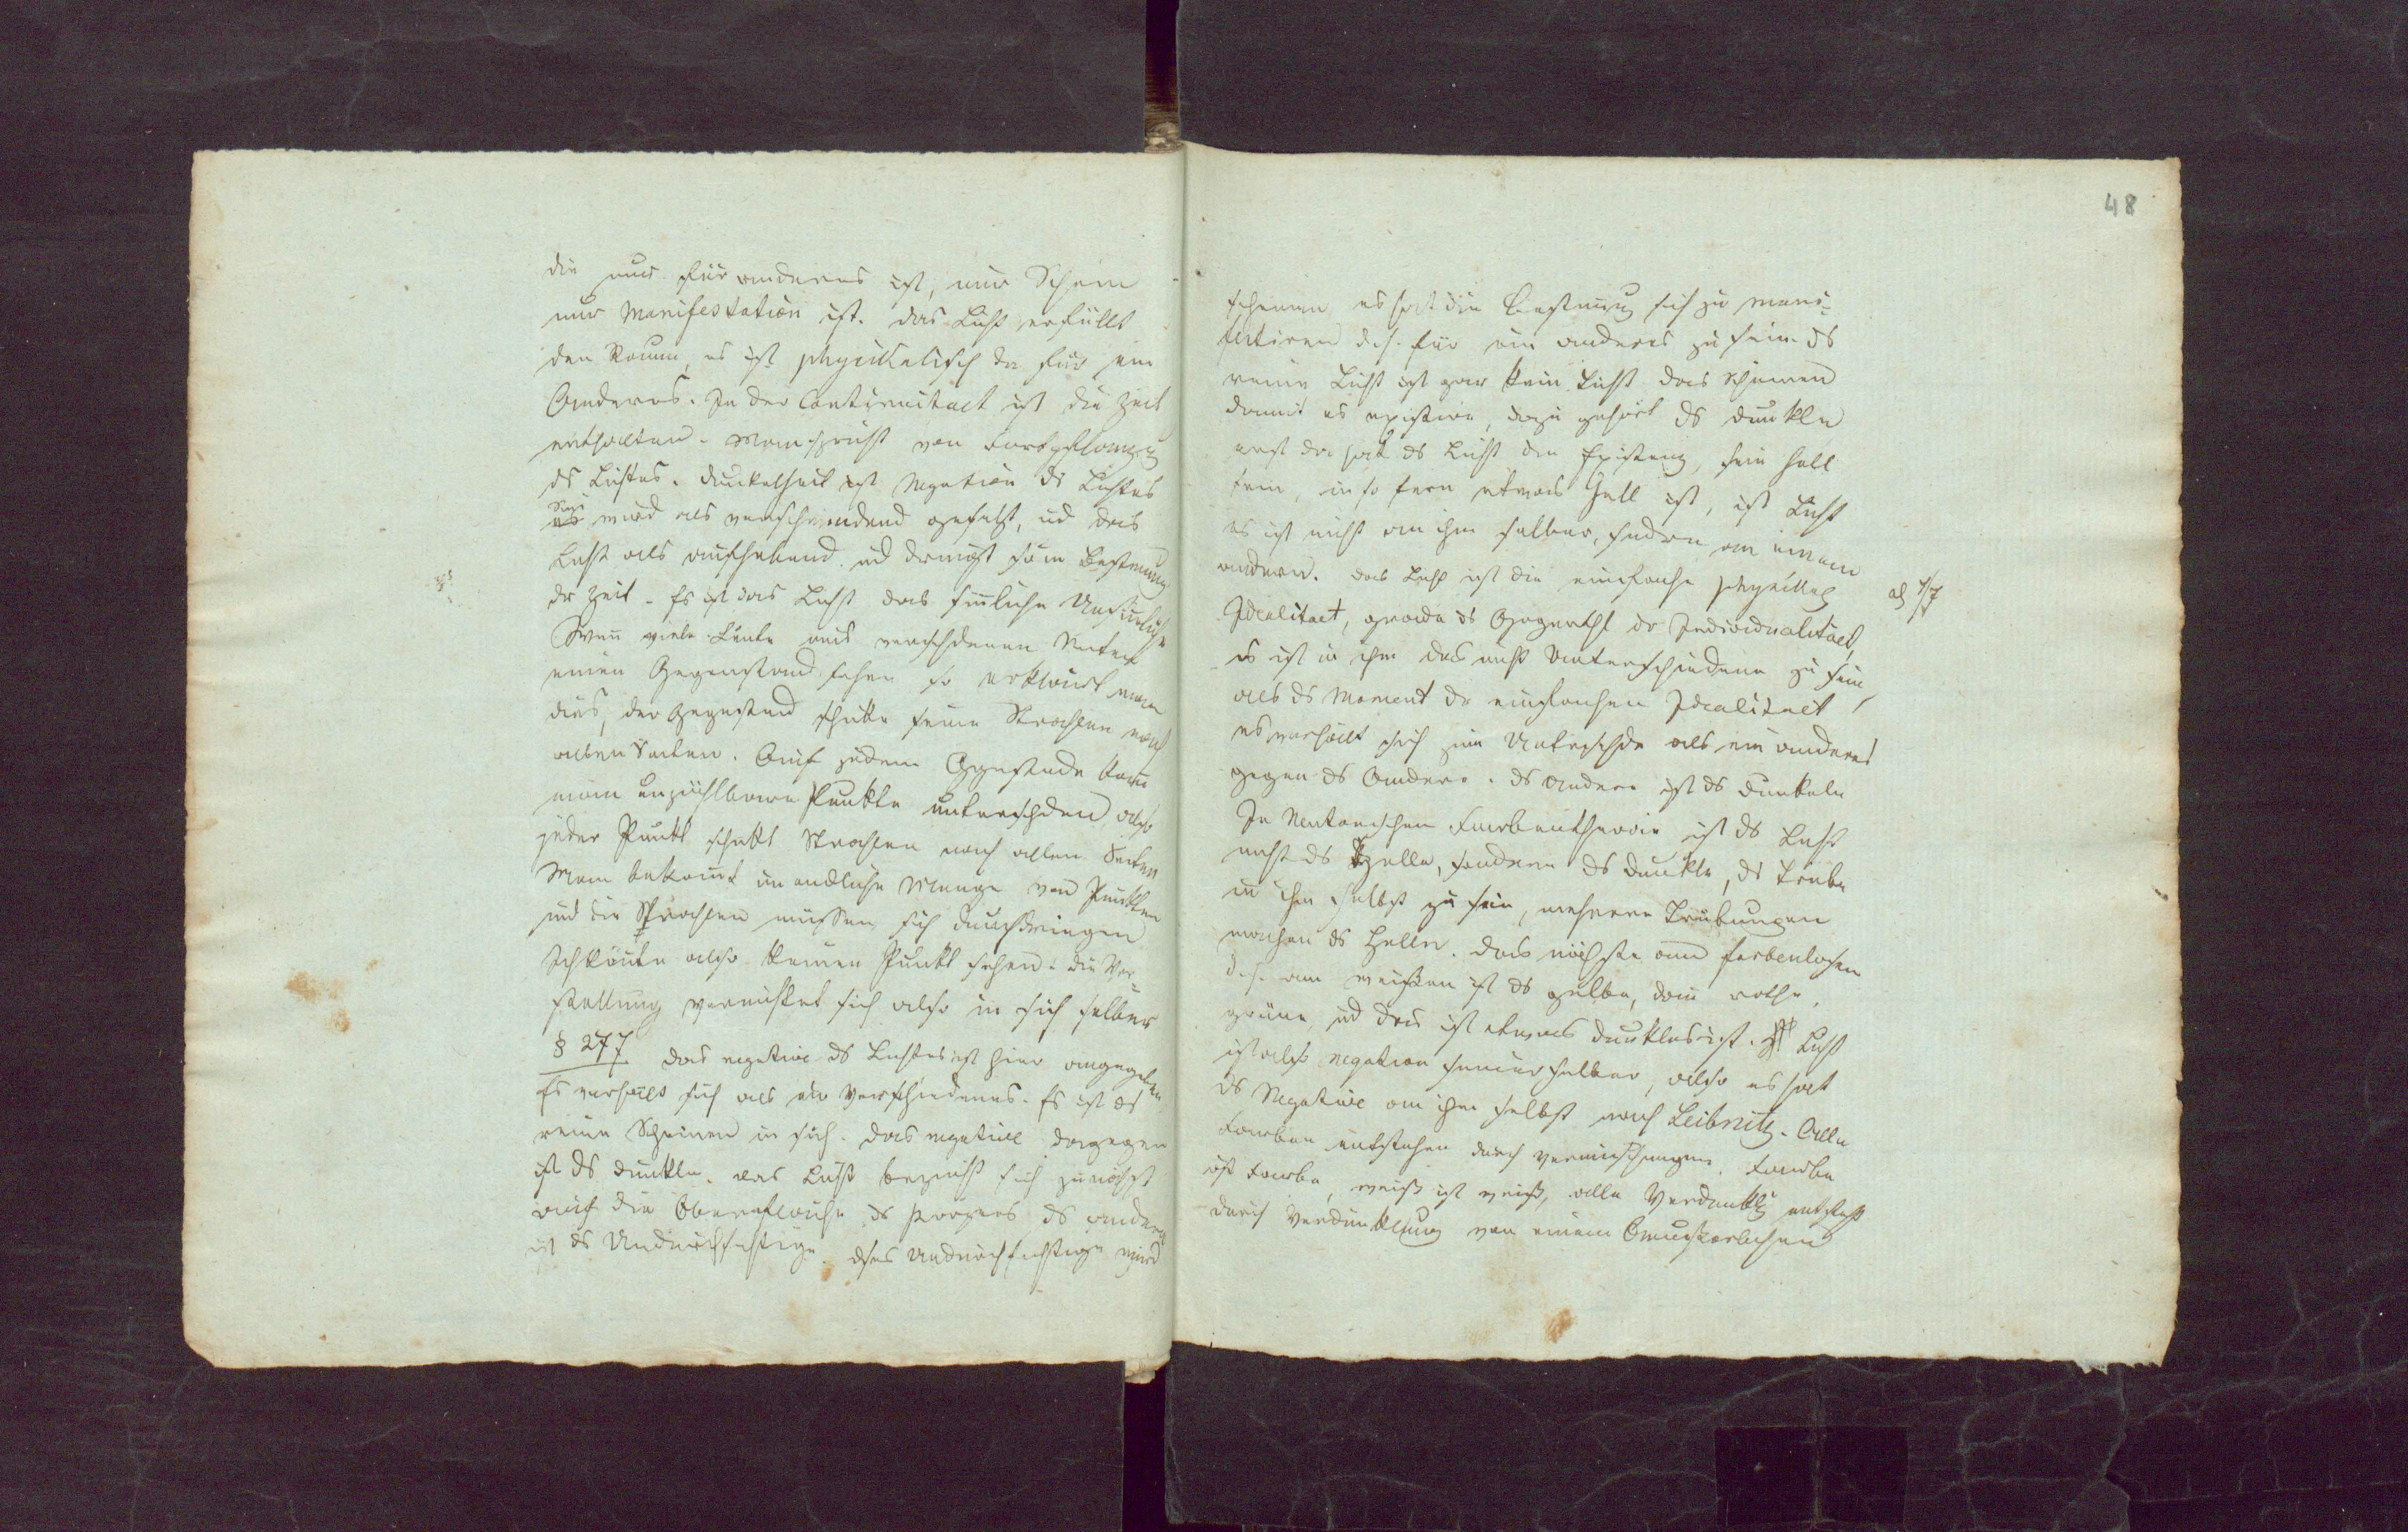 die nur für anderes ist, nur Schein
nur Manifestation ist. das Licht erfüllt
den Raum, es ist physikalisch da für ein
Anderes. In der Continuitaet ist die Zeit
enthalten. Man spricht von Fortpflanzung
ds Lichtes. Dunkelheit ist Negation ds Lichtes
es wird als verschwindend gesetzt, ud das
Licht als aufhebend ud drängt sein Bestimmung
dr Zeit. Es ist das Licht das sinnliche Unsinnliche
Wenn viele Leute aus verschdenen Seiten
einen Gegenstand sehen so erklärt man
dies, der Gegenstand schike seine Strahlen nach
allen Seiten. Auf jedem Ggenstande kann
man unzählbare Punkte unterschden also
jeder Punkt schikt Strahlen nach allen Seiten
Man bekomt unendliche Menge von Punkten
und die Strahlen müssen sich durchdringen
Ich könte also keinen Punkt sehen. Die Vor=
stellung vernichtet sich also in sich selber
§ 277 das negative ds Lichtes ist hier angegeben
Es verhält sich als ein Verschiedenes. Es ist ds
reine Scheinen in sich. das negative dagegen
ist ds dunkle. das Licht bezieht sich zunächst
auf die Oberflache ds Körpers ds andere
ist ds Undurchsichtige. dses Undurchsichtige wird
48
scheinen es hat die Bestimung sich zu mani=
festiren d.h. für ein anderes zu sein. ds
reine Licht ist gar kein Licht das Scheinen
damit es existire, dazu gehört ds dunkle
erst da hat ds Licht die Existenz, sein hell
sein, in so fern etwas Hell ist, ist Licht
es ist nicht an ihm selber, sodern an einem
andern. das Licht ist die einfache physikal
Idealitaet, grade ds Gegenthl dr Individualitaet,
es ist in ihm das nicht Unterschiedene zu sein,
als ds Moment dr einfachen Idealitaet,
es verhält sich zum Unterschde als ein anderes
gegen ds Andere. ds Andere ist ds Dunkele
In Neutonischen Farbentheorie ist ds Licht
nicht ds Helle, sondern ds dunkle, ds trübe
in ihm selbst zu sein, mehrere Trübungen
machen ds Helle. das nächste am farbenlosen
d.h. am weißen ist ds gelbe, dann rothe,
grüne, ud das ist etwas dunkles ist. Licht
ist also negation seiner selber, also es hat
ds Negative an ihm selbst nach Leibnitz. Alle
Farben entstehen durch vermischungen. Farbe
ist Farbe, weiß ist weiß, alle Verdunklg entsteht
durch Verdunkelung von einem